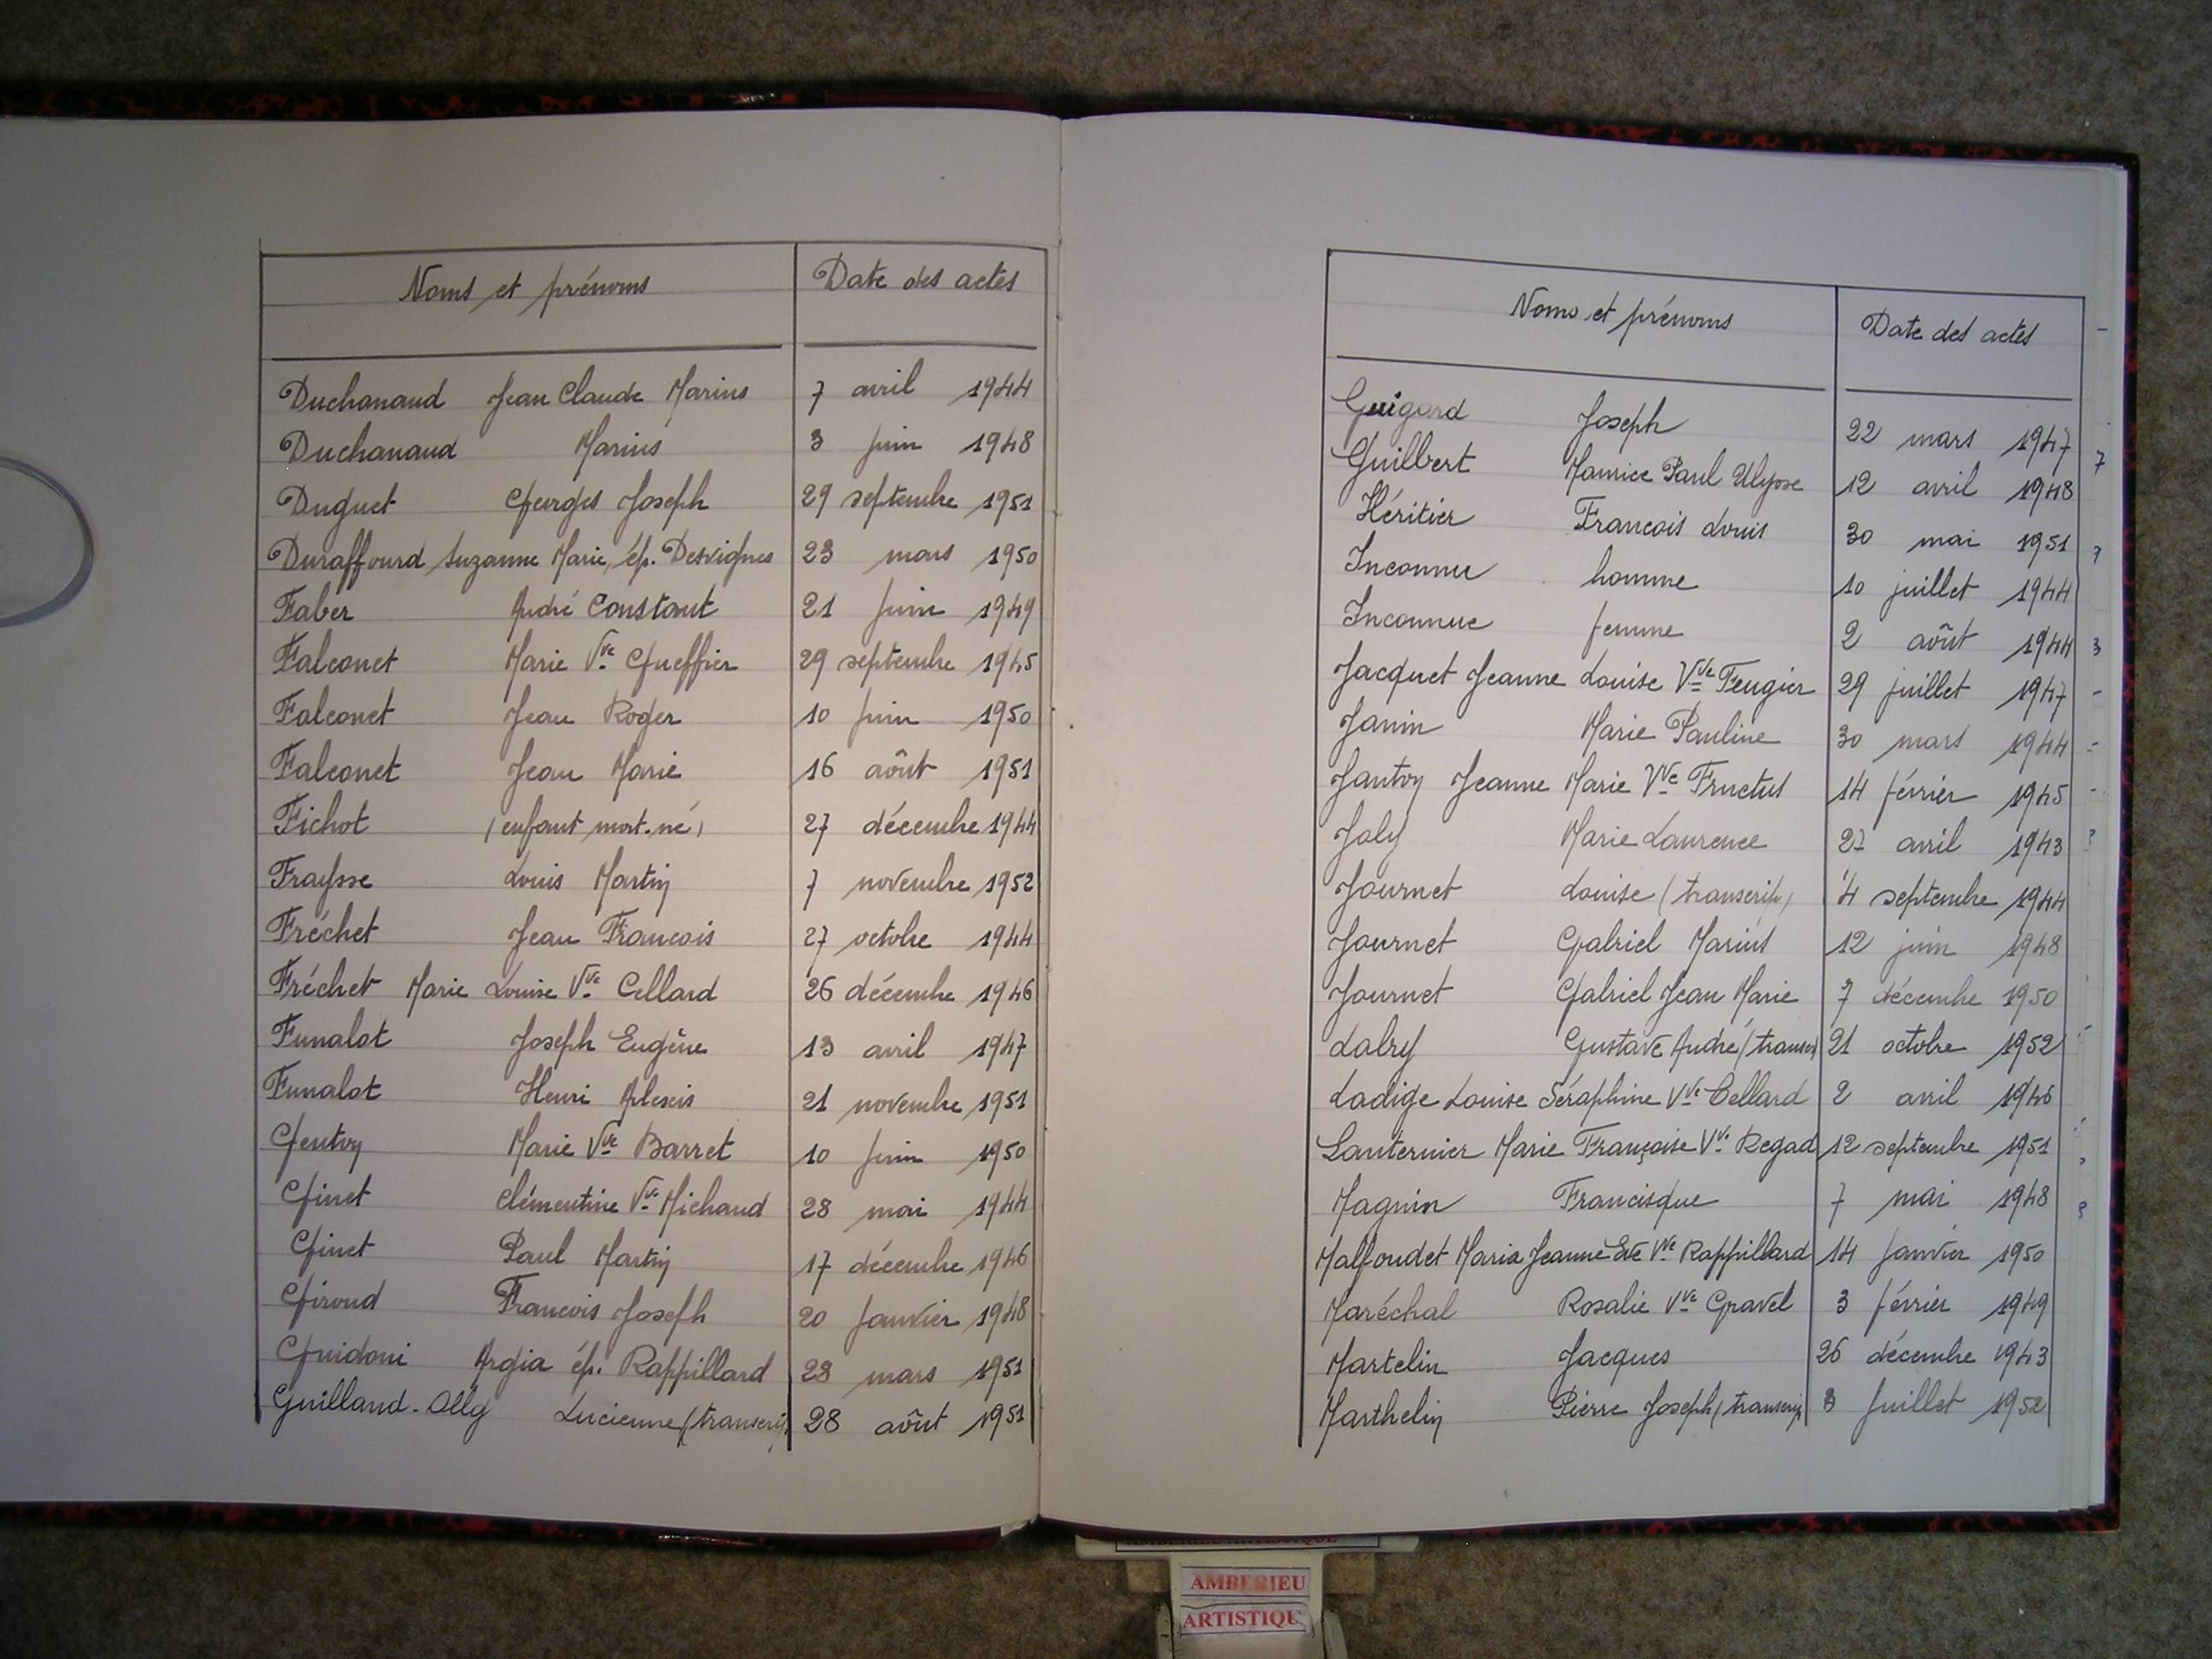 Noms et prénoms Date des actes
Duchanaud Jean Claude Marius 7 avril 1944
Duchanaud Marius 3 juin 1948
Duguet Georges Joseph 29 septembre 1951
Duraffourd Suzanne Marie, ép. Desvignes 23 mars 1950
Faber André Constant 21 juin 1949
Falconet Marie Vve Gueffier 29 septembre 1945
Falconet Jean Roger 10 juin 1950
Falconet Jean Marie 16 août 1951
Fichot (enfant mort-né) 27 décembre 1944
Fraysse Louis Martin 7 novembre 1952
Fréchet Jean Francois 27 octobre 1944
Fréchet Marie Louise Vve Cellard 26 décembre 1946
Funalot Joseph Eugène 13 avril 1947
Funalot Henri Alexis 21 novembre 1951
Gentoy Marie Vve Barret 10 juin 1950
Ginet Clémentine Vve Michaud 28 mai 1944
Ginet Paul Martin 17 décembre 1946
Giroud Francois Joseph 20 janvier 1948
Guidoni Argia ép. Rappillard 23 mars 1951
Guilland-Ollg Lucienne (transcrip) 28 août 1951
Noms et prénoms Date des actes
Guigard Joseph 22 mars 1947
Guilbert Maurice Paul Ulysse 12 avril 1948
Héritier Francois Louis 30 mai 1951
Inconnu homme 10 juillet 1944
Inconnue femme 2 août 1944
Jacquet Jeanne Louise Vve Feugier 29 juillet 1947
Janin Marie Pauline 30 mars 1944
Jantoy Jeanne Marie Vve Fructus 14 février 1945
Joly Marie Laurence 27 avril 1943
Journet Louise (transcrip) 4 septembre 1944
Journet Gabriel Marius 12 juin 1948
Journet Gabriel Jean Marie 7 décembre 1950
Labry Gustave André (transc) 21 octobre 1952
Ladige Louise Séraphine Vve Cellard 2 avril 1946
Lanternier Marie Françoise Vve Regad 12 septembre 1951
Magnin Francisque 7 mai 1948
Malfoudet Maria Jeanne Eve Vve Rappillard 14 janvier 1950
Maréchal Rosalie Vve Gravel 3 février 1949
Martelin Jacques 26 décembre 1943
Marthelin Pierre Joseph (transcrip 8 juillet 1952
AMBERIEU
ARTISTIQUE